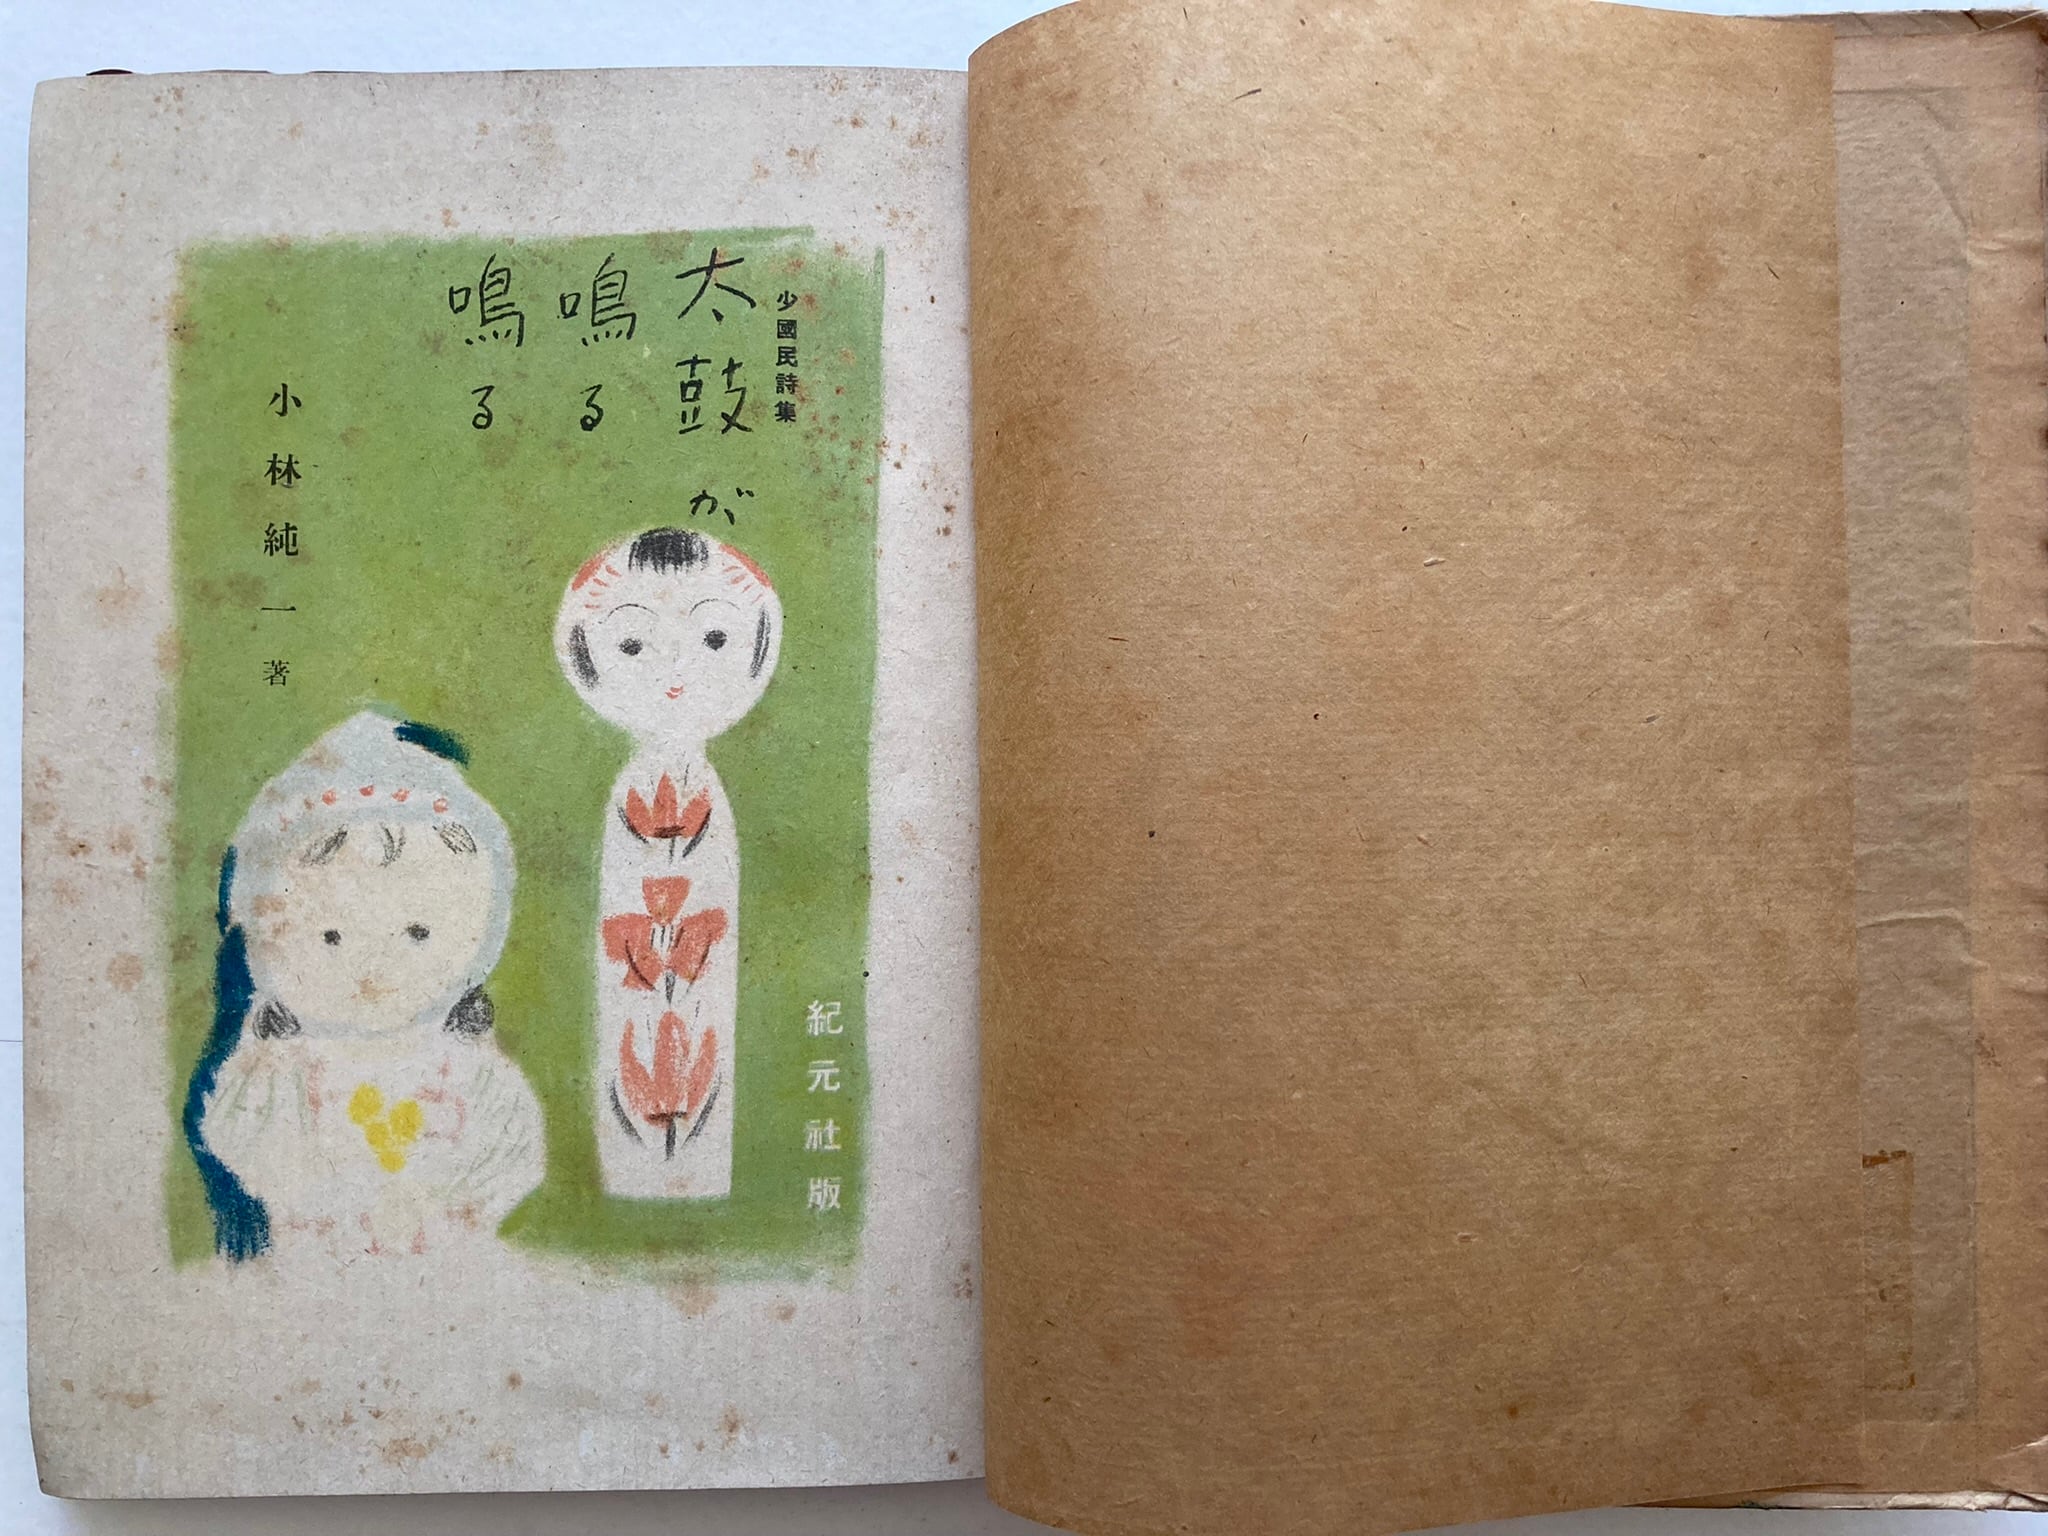 少國民詩集
太鼓が
鳴る
鳴る
小林純一著
紀元社版